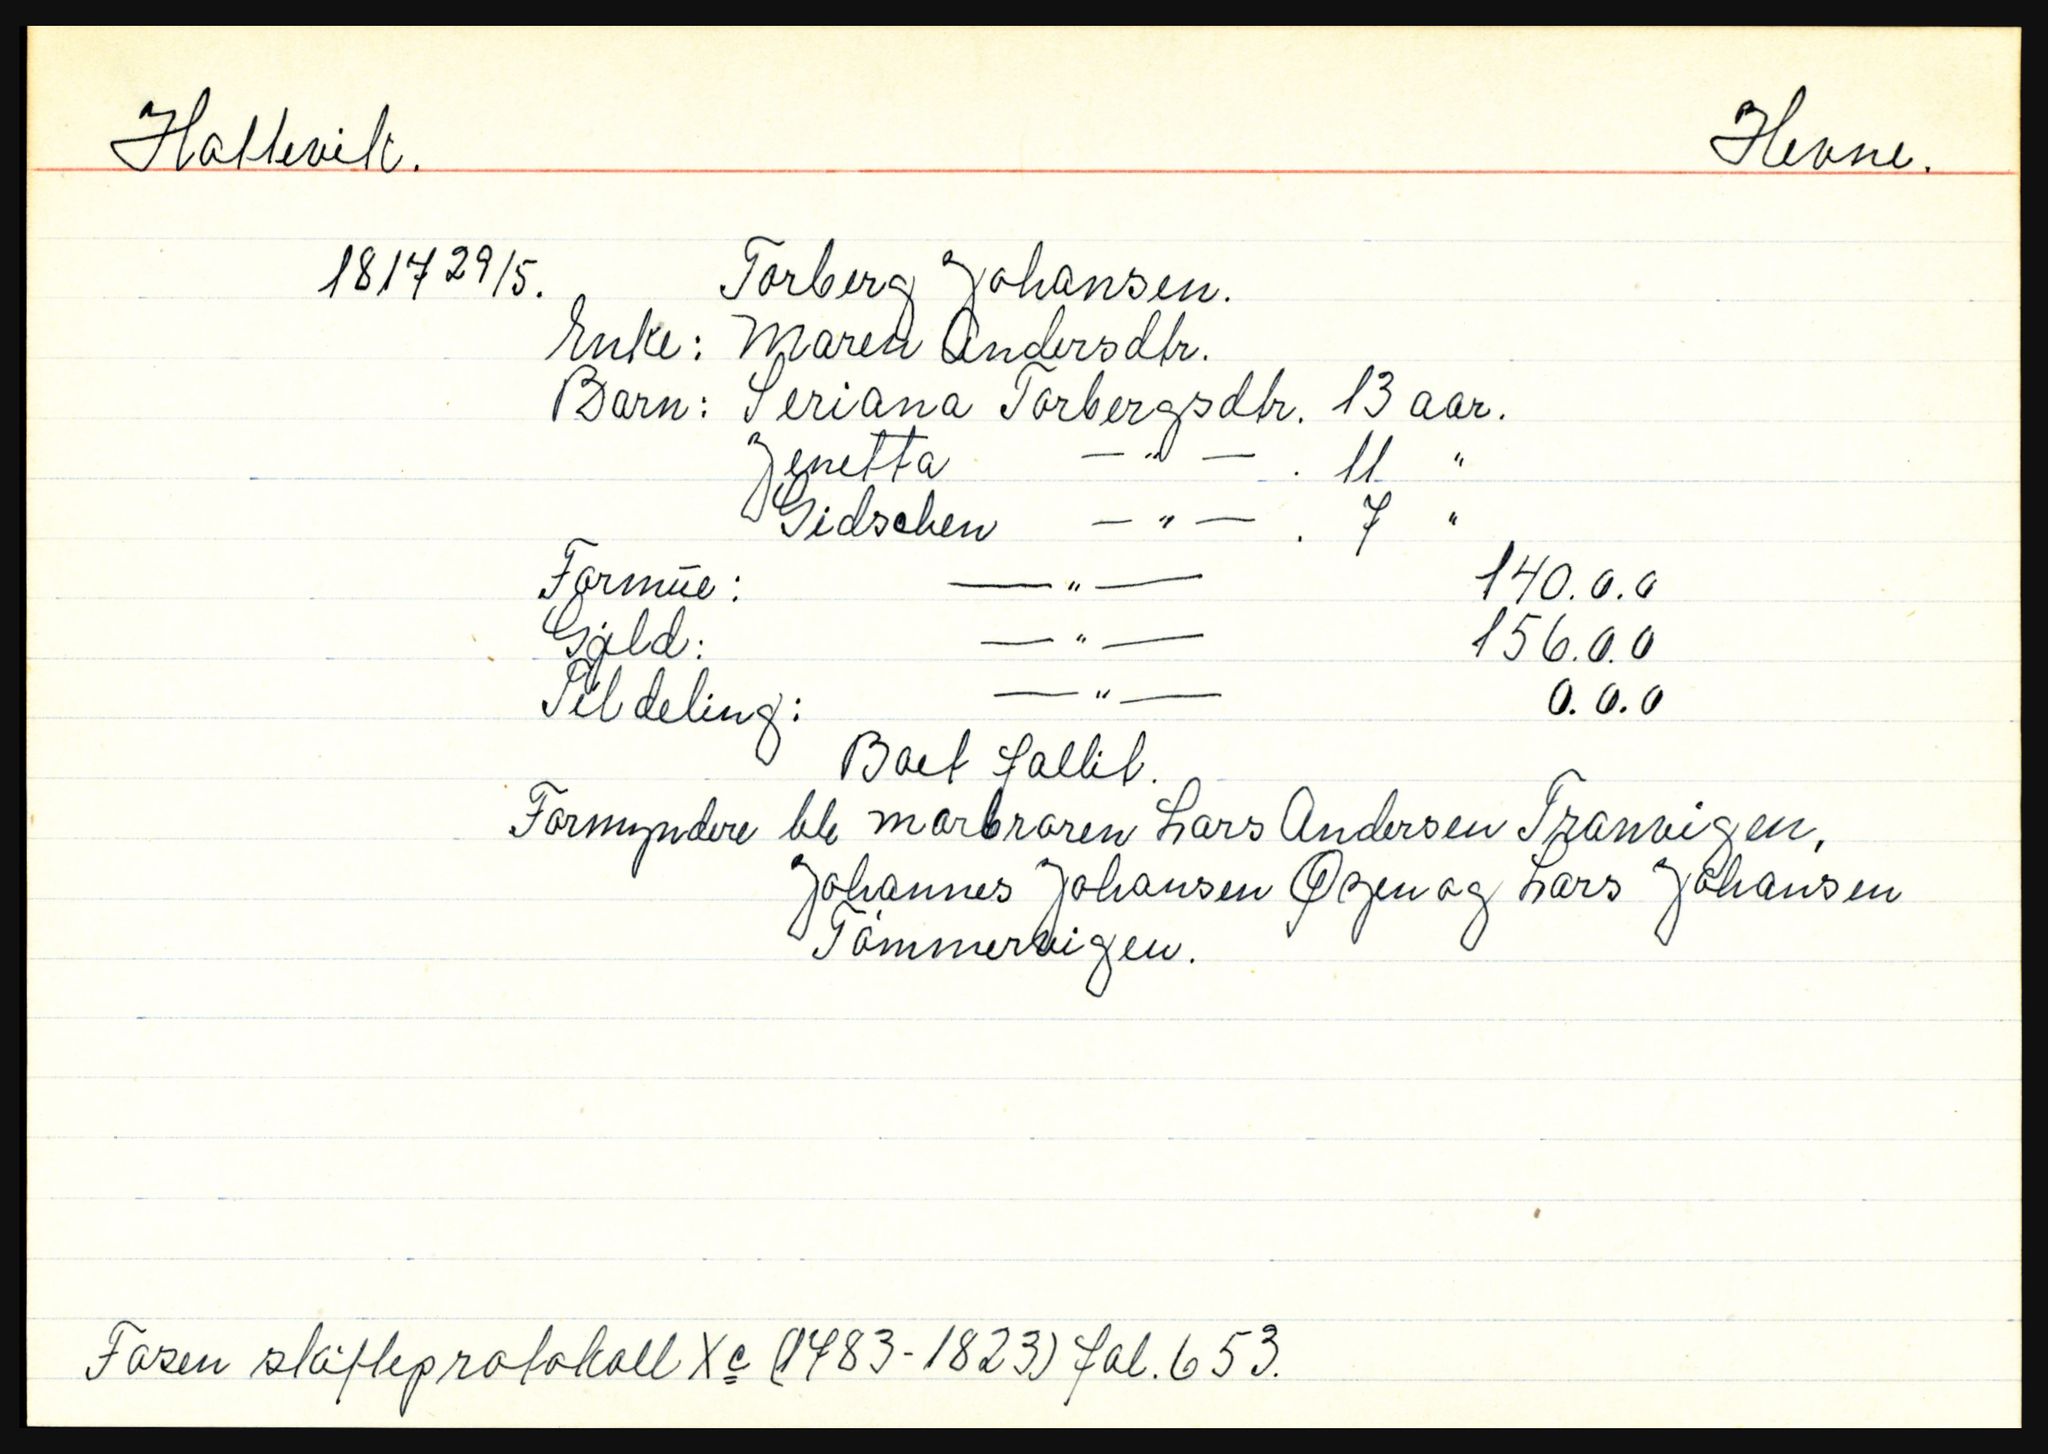 Hallevik. Hevne.
1817 29/5. Torberg Johansen.
Enke: Maren Andersdtr.
Barn: Seriana Torbergsdtr. 13 aar.
Jenetta — " — . 11 "
Gidschen — " — . 7 "
Formue: — " — 140.0.0
Gjeld: — " — 156.0.0
Til deling: — " — 0.0.0
Boet fallit.
Formyndere ble morbroren Lars Andersen Tranvigen,
Johannes Johansen Øyen og Lars Johansen
Tömmervigen.
Fosen skifteprotokoll Xc (1783-1823) fol. 653.